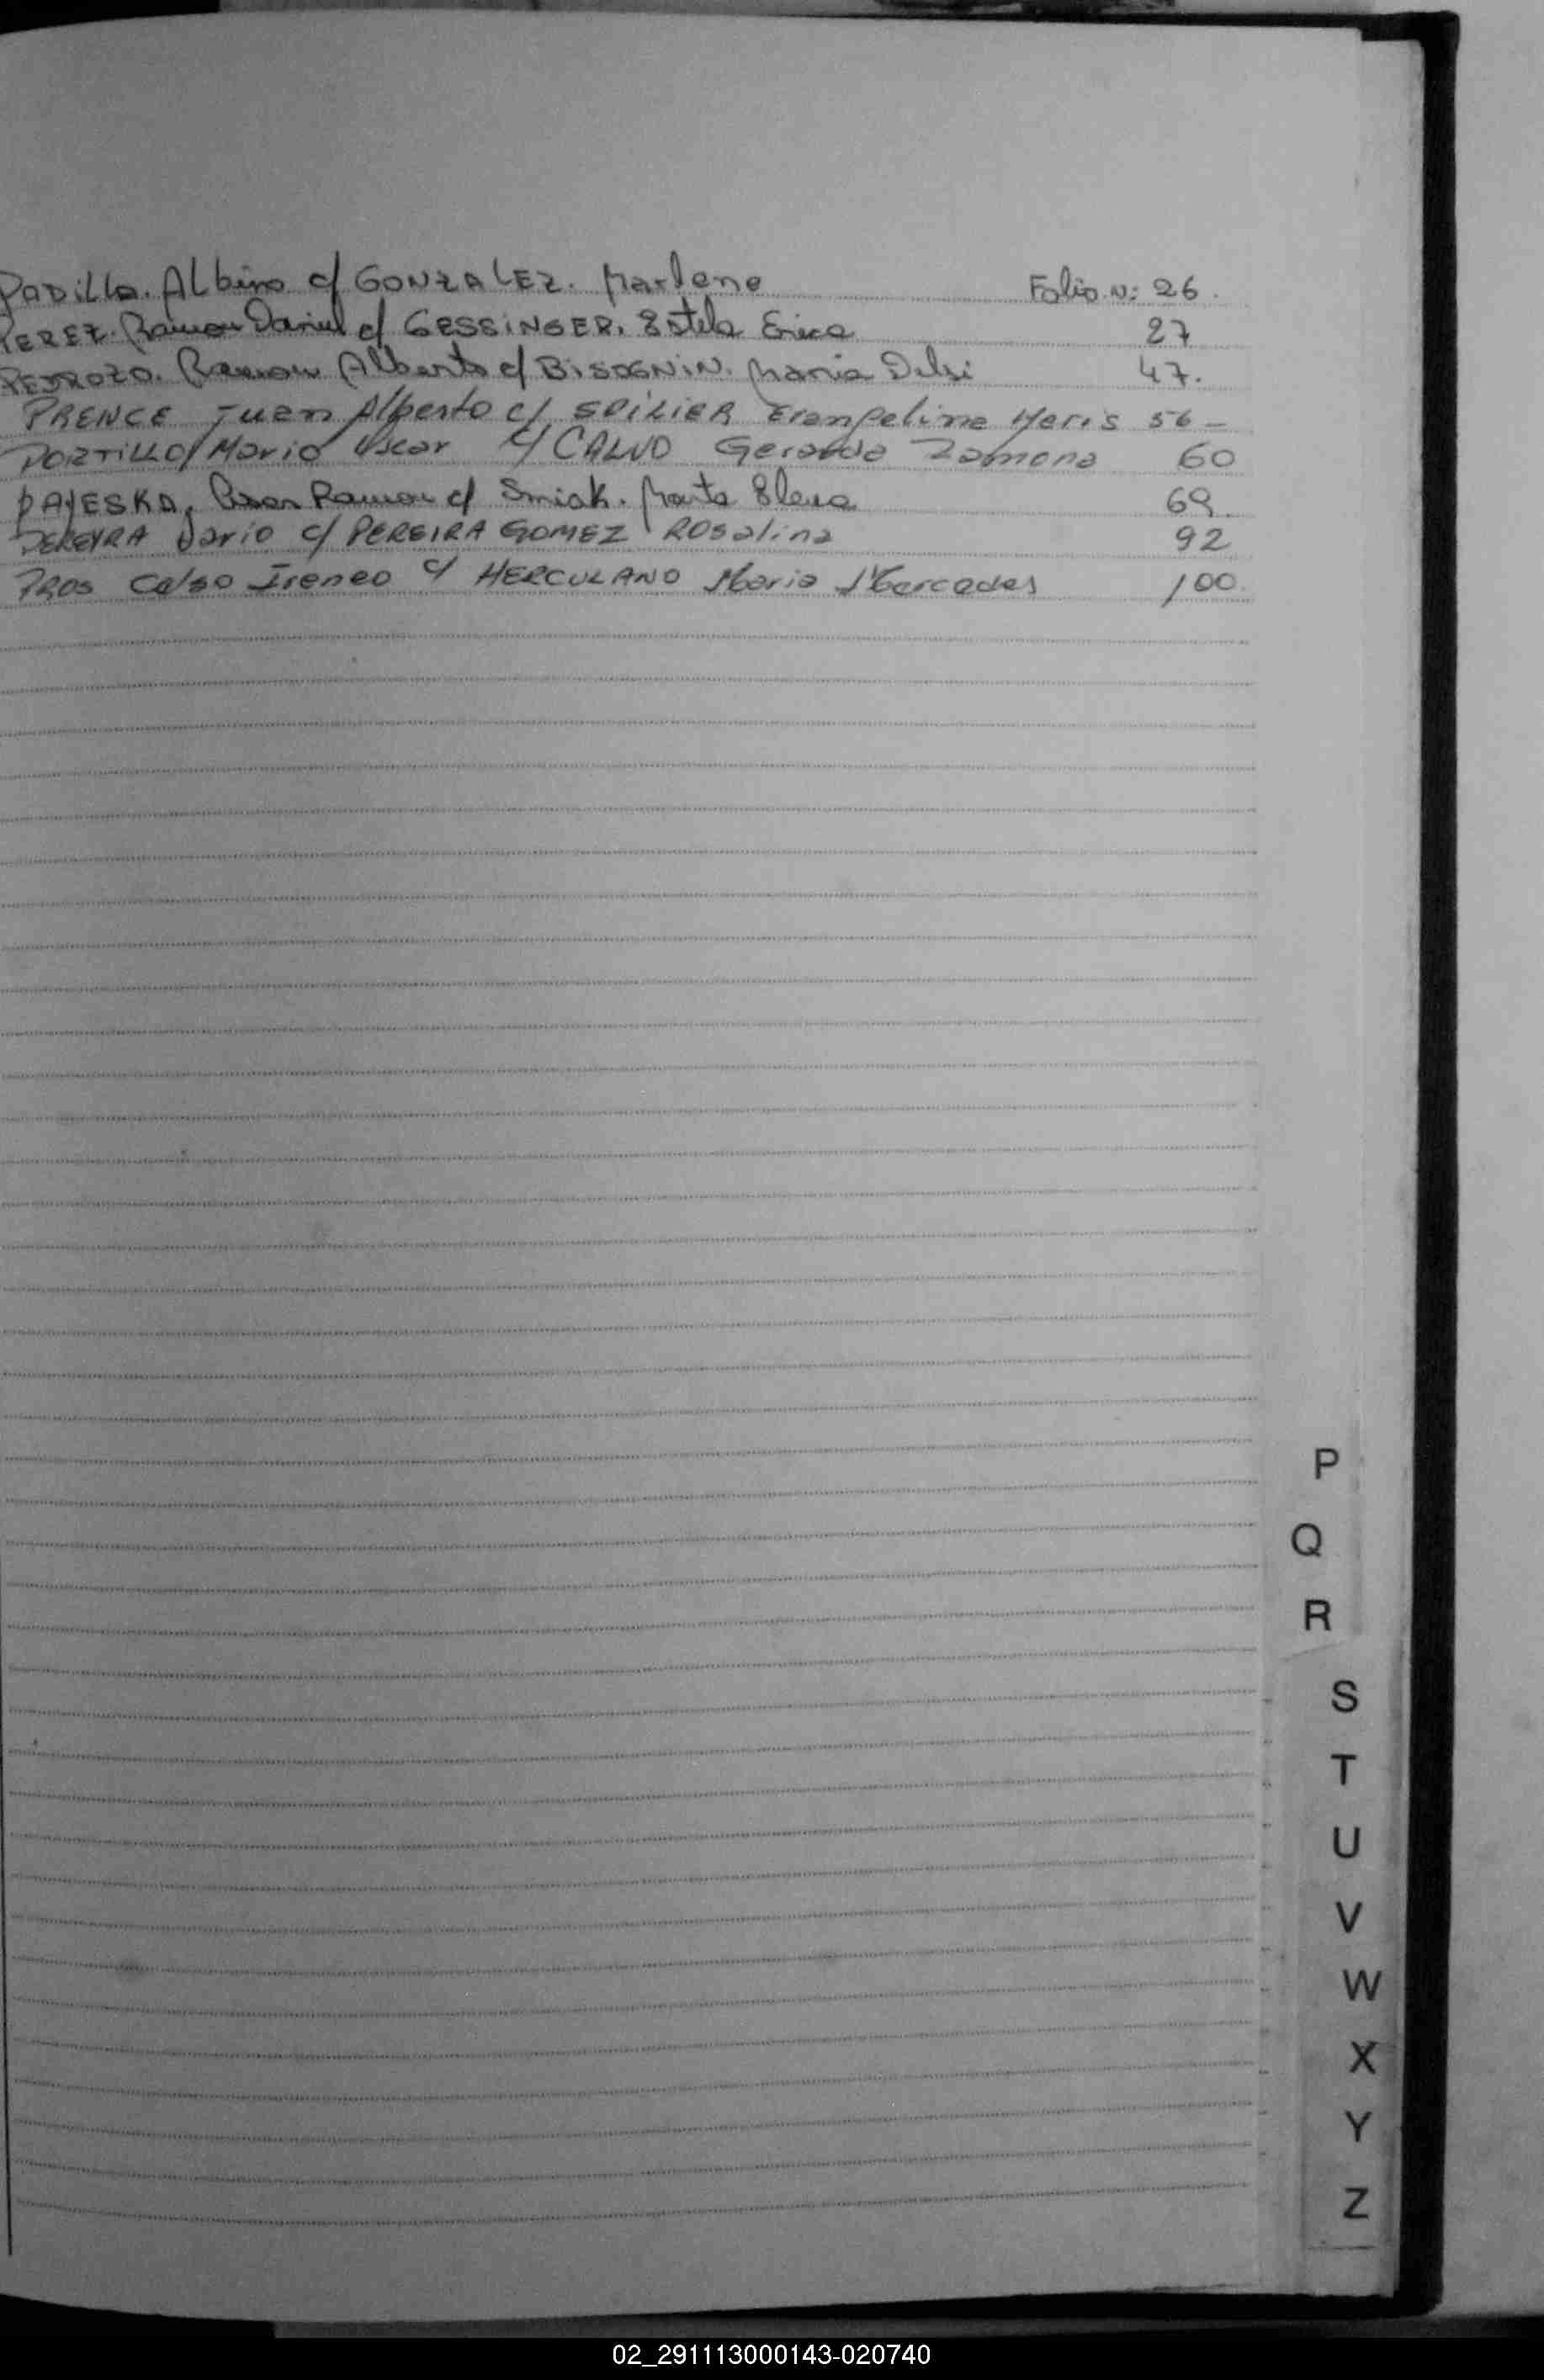 PADILLA. Albino c/ GONZALEZ. Marlene Folio N: 26.
PEREZ. Ramon Daniel c/ GESSINGER. Estela Erica 27
PEDROZO. Ramon Alberto c/ BISOGNIN. Maria Delsi 47.
PRENCE Juan Alberto c/ Evangelina Meris 56-
PORTILLO Mario Oscar c/ CALVO Gerarda Ramona 60
PAJESKA, Ramon c/ Smiak. Marta Elena 69.
PEREYRA Dario c/ PEREIRA GOMEZ Rosalina 92
PROS Celso Ireneo c/ HERCULANO Maria Mercedes 100.
P
Q
R
S
T
U
V
W
X
Y
Z
02_291113000143-020740